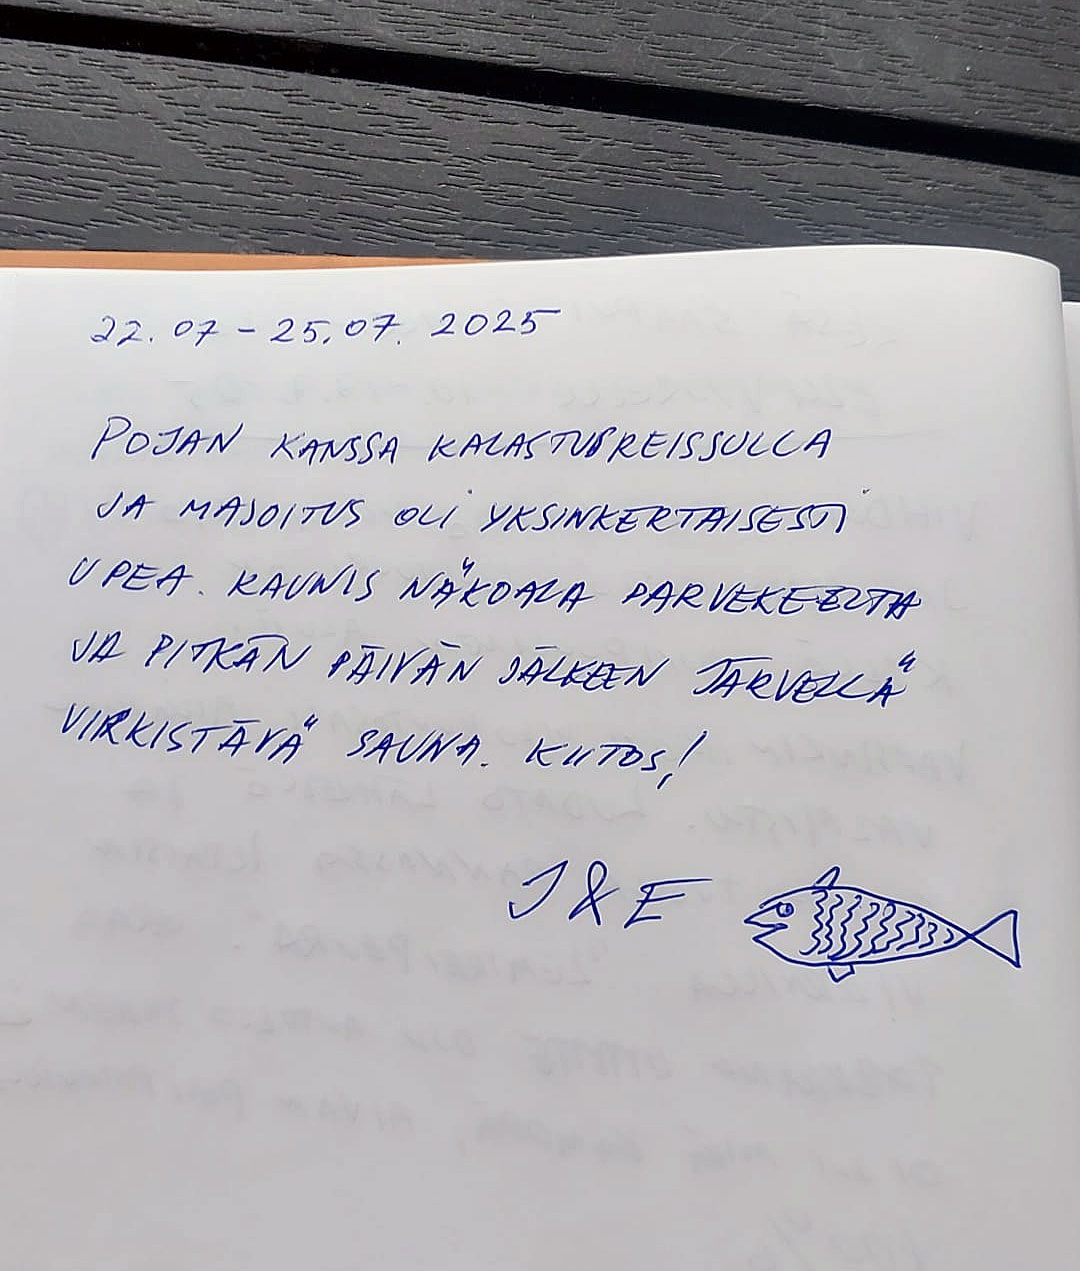 22.07 - 25.07. 2025
POJAN KANSSA KALASTUSREISSULLA
JA MAJOITUS OLI YKSINKERTAISESTI
UPEA. KAUNIS NÄKÖALA PARVEKEELTA
JA PITKÄN PÄIVÄN JÄLKEEN JÄRVELLÄ
VIRKISTÄVÄ SAUNA. KIITOS!
J & E